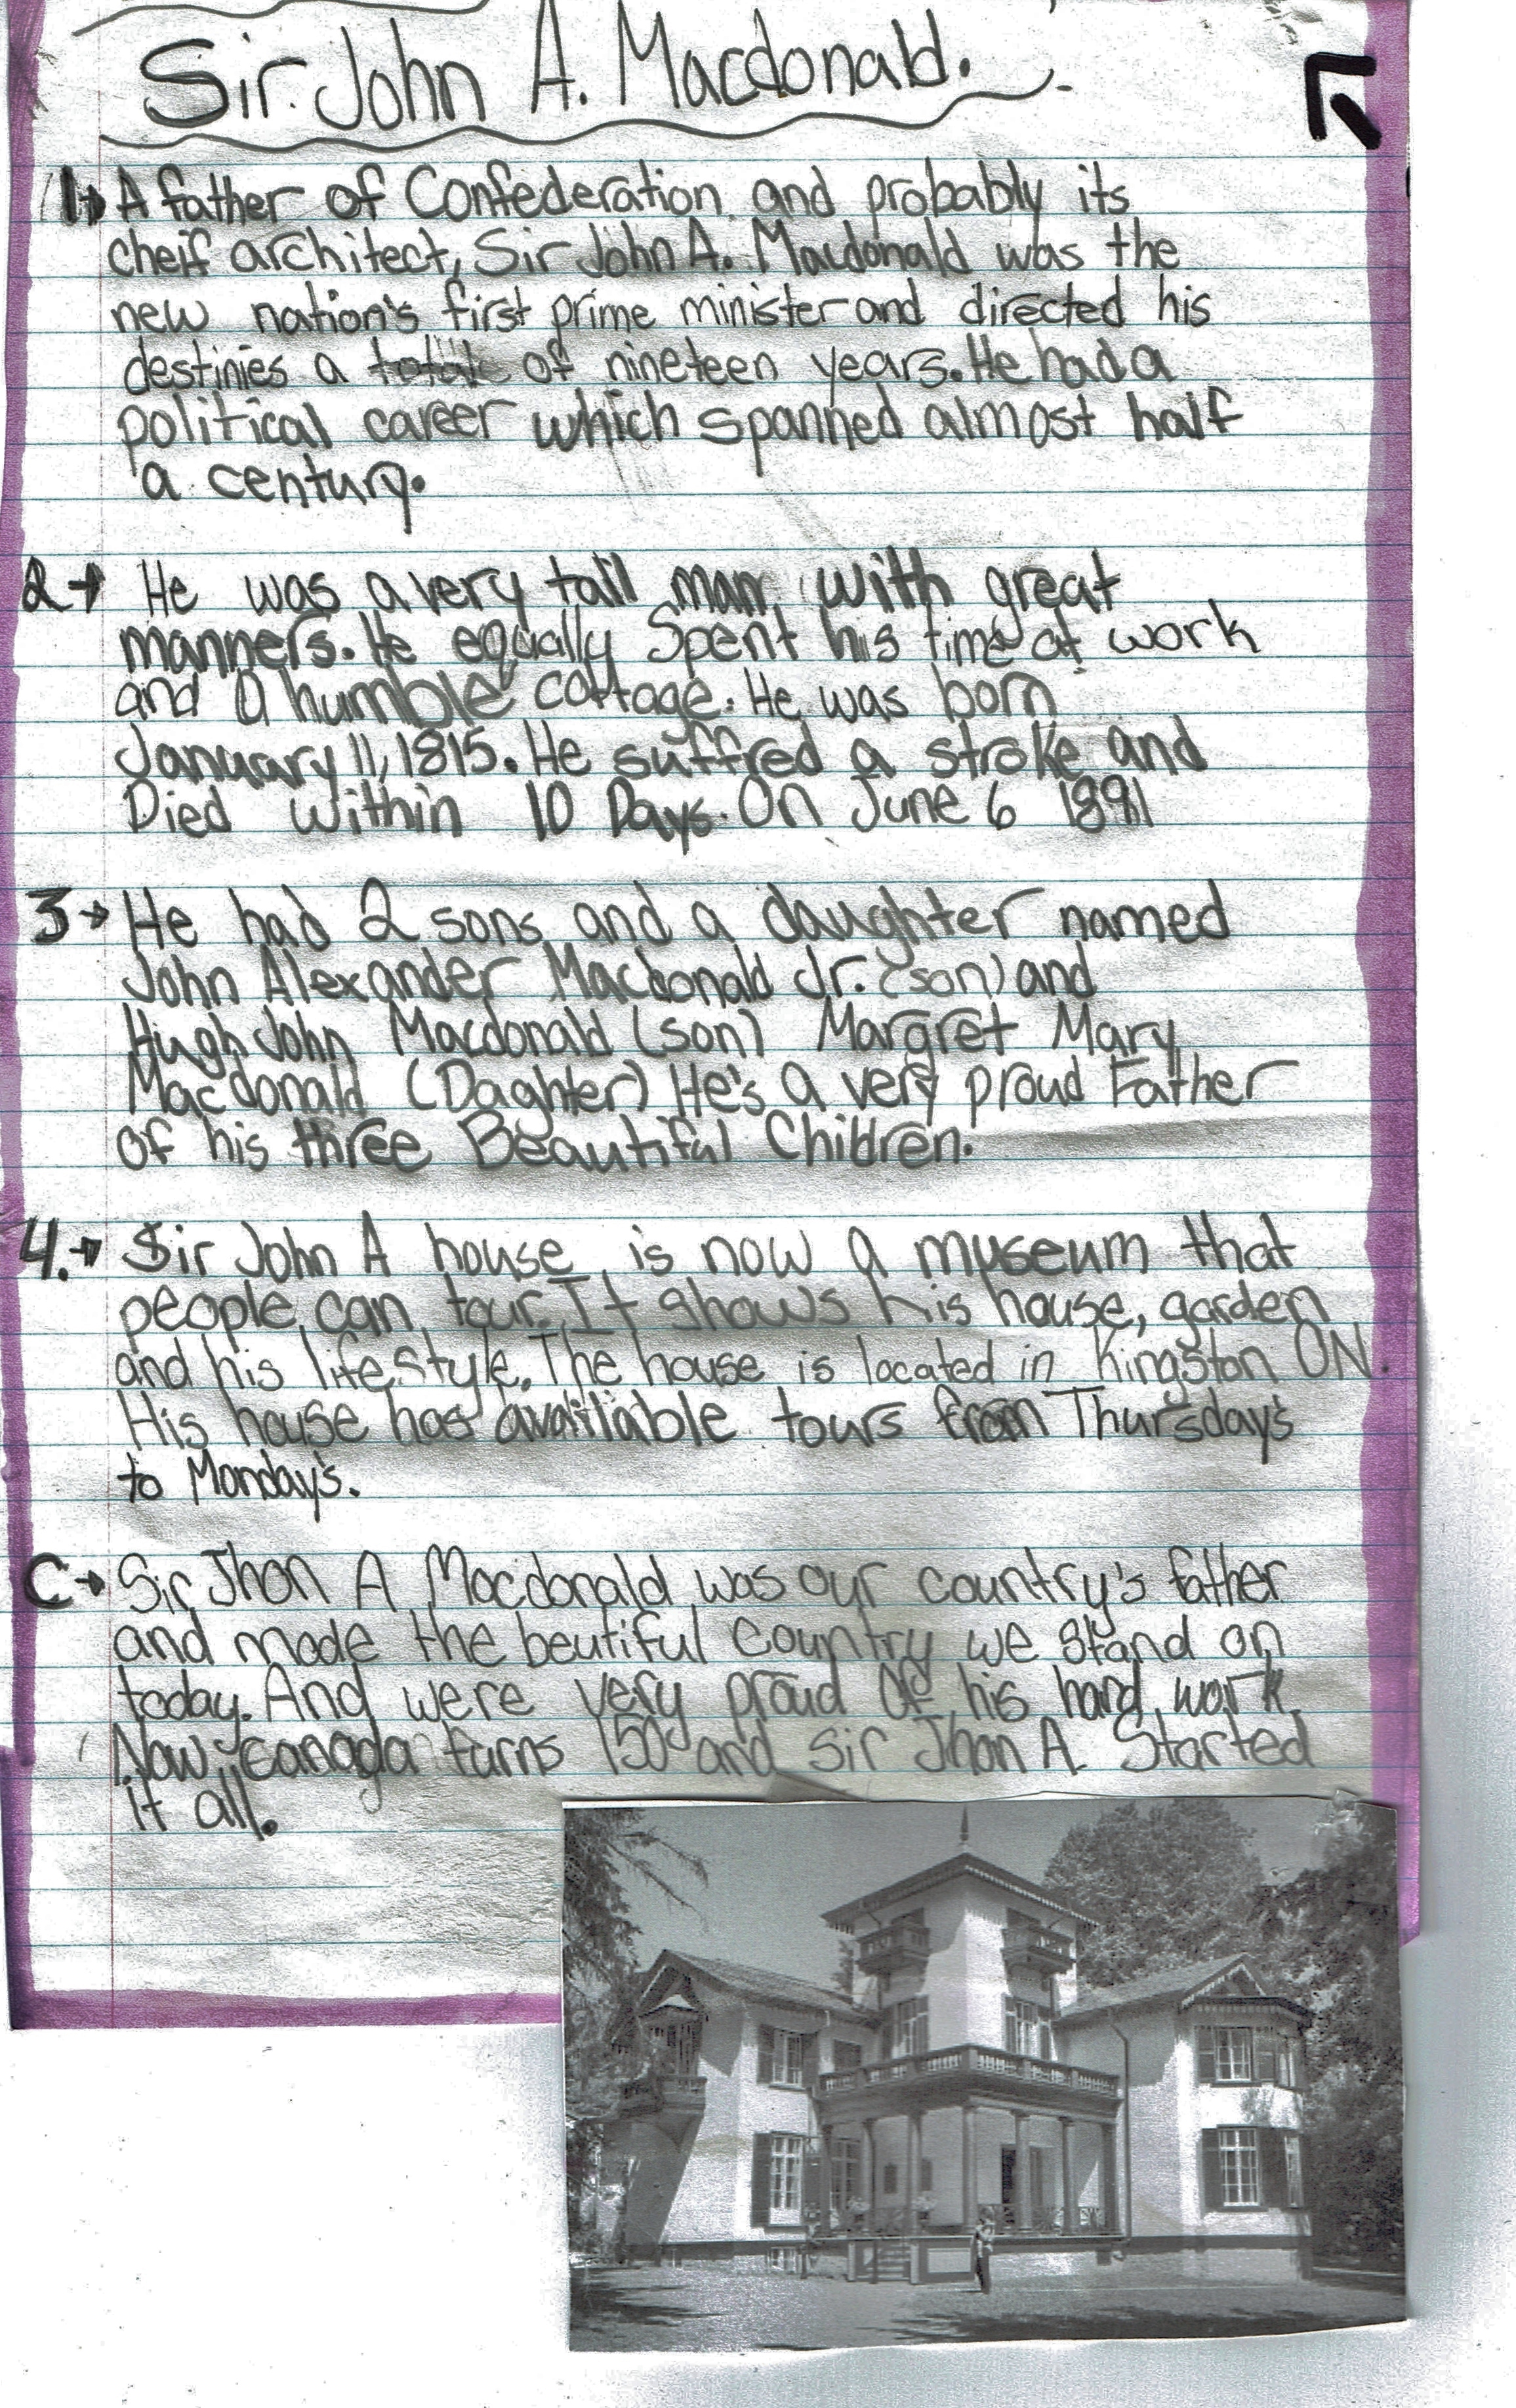 Sir. John A. Macdonald.
1. A father of Confederation and probably its
cheif architect, Sir John A. Macdonald was the
new nation's first prime minister and directed his
destinies a of nineteen years. He had a
political career which spanned almost half
a century.
2 He was a very tall man with great
manners. He equally Spent his time at work
and a humble cottage. He was born
January 11, 1815. He suffred a stroke and
Died within 10 Days. On June 6 1891
3 He had 2 sons and a daughter named
John Alexander Macdonald Jr. (son) and
Hugh John Macdonald (son) Margret Mary
Macdonald (Daghter) He's a very proud Father
of his three Beautiful Children.
4. Sir John A house is now a museum that
people can tour. It shows his house, garden
and his lifestyle. The house is located in Kingston ON.
His house has availiable tours from Thursday's
to Monday's.
C Sir Jhon A Macdonald was our country's father
and made the beutiful country we stand on
today. And were very proud of his hard work.
Now canada turns 150 and Sir Jhon A. Started
it all.